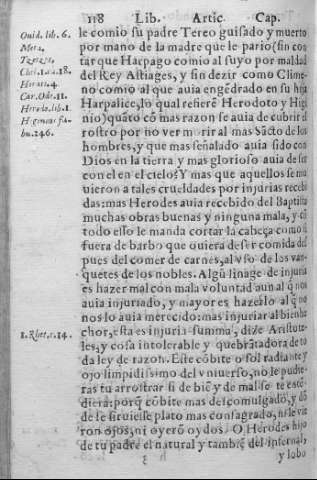 118 Lib. Artic. Cap.
Ouid. lib. 6.
Meta.
Chil. 1. ca. 18.
Horat. 4.
Car. Ode. 11.
Herodo. lib. 1.
Higinius fa-
bu. 246.
le comio su padre Tereo guisado y muerto
por mano de la madre que le pario (sin con
tar que Harpago comio al suyo por maldad
del Rey Astiages, y sin dezir como Clime-
no comio al que auia engēdrado en su hija
Harpalice, lo qual refierē Herodoto y Higi
nio) quāto cō mas razon se auia de cubrir el
rostro por no ver morir al mas Sācto de los
hombres, y que mas señalado auia sido con
Dios en la tierra y mas glorioso auia de ser
con el en el cielo? Y mas que aquellos se mo
uieron a tales crueldades por injurias recebi
das: mas Herodes auia recebido del Baptista
muchas obras buenas y ninguna mala, y cō
todo esso le manda cortar la cabeça como si
fuera de barbo que quiera de ser comida des
pues del comer de carnes, al vso de los van-
quetes de los nobles. Algū linage de injuria
es hazer mal con mala voluntad aun al q̄ nos
auia injuriado, y mayor es hazerlo al q̄ no
nos lo auia merecido: mas injuriar al bienhe
1. Rhet. c. 14.
chor, esta es injuria summa, dize Aristote-
les, y cosa intolerable y quebrātadora de to
da ley de razon. Este cōbite o sol radiante y
ojo limpidissimo del vniuerso, no le pudie-
ras tu arrostrar si de biē y de mal se te estē-
diera: porq̄ cōbite mas descomulgado, y dō
de se siruiesse plato mas consagrado, ni le vie
ron ojos, ni oyerō oydos. O Herodes hijo
de tu padre el natural y tambiē del infernal,
y lobo